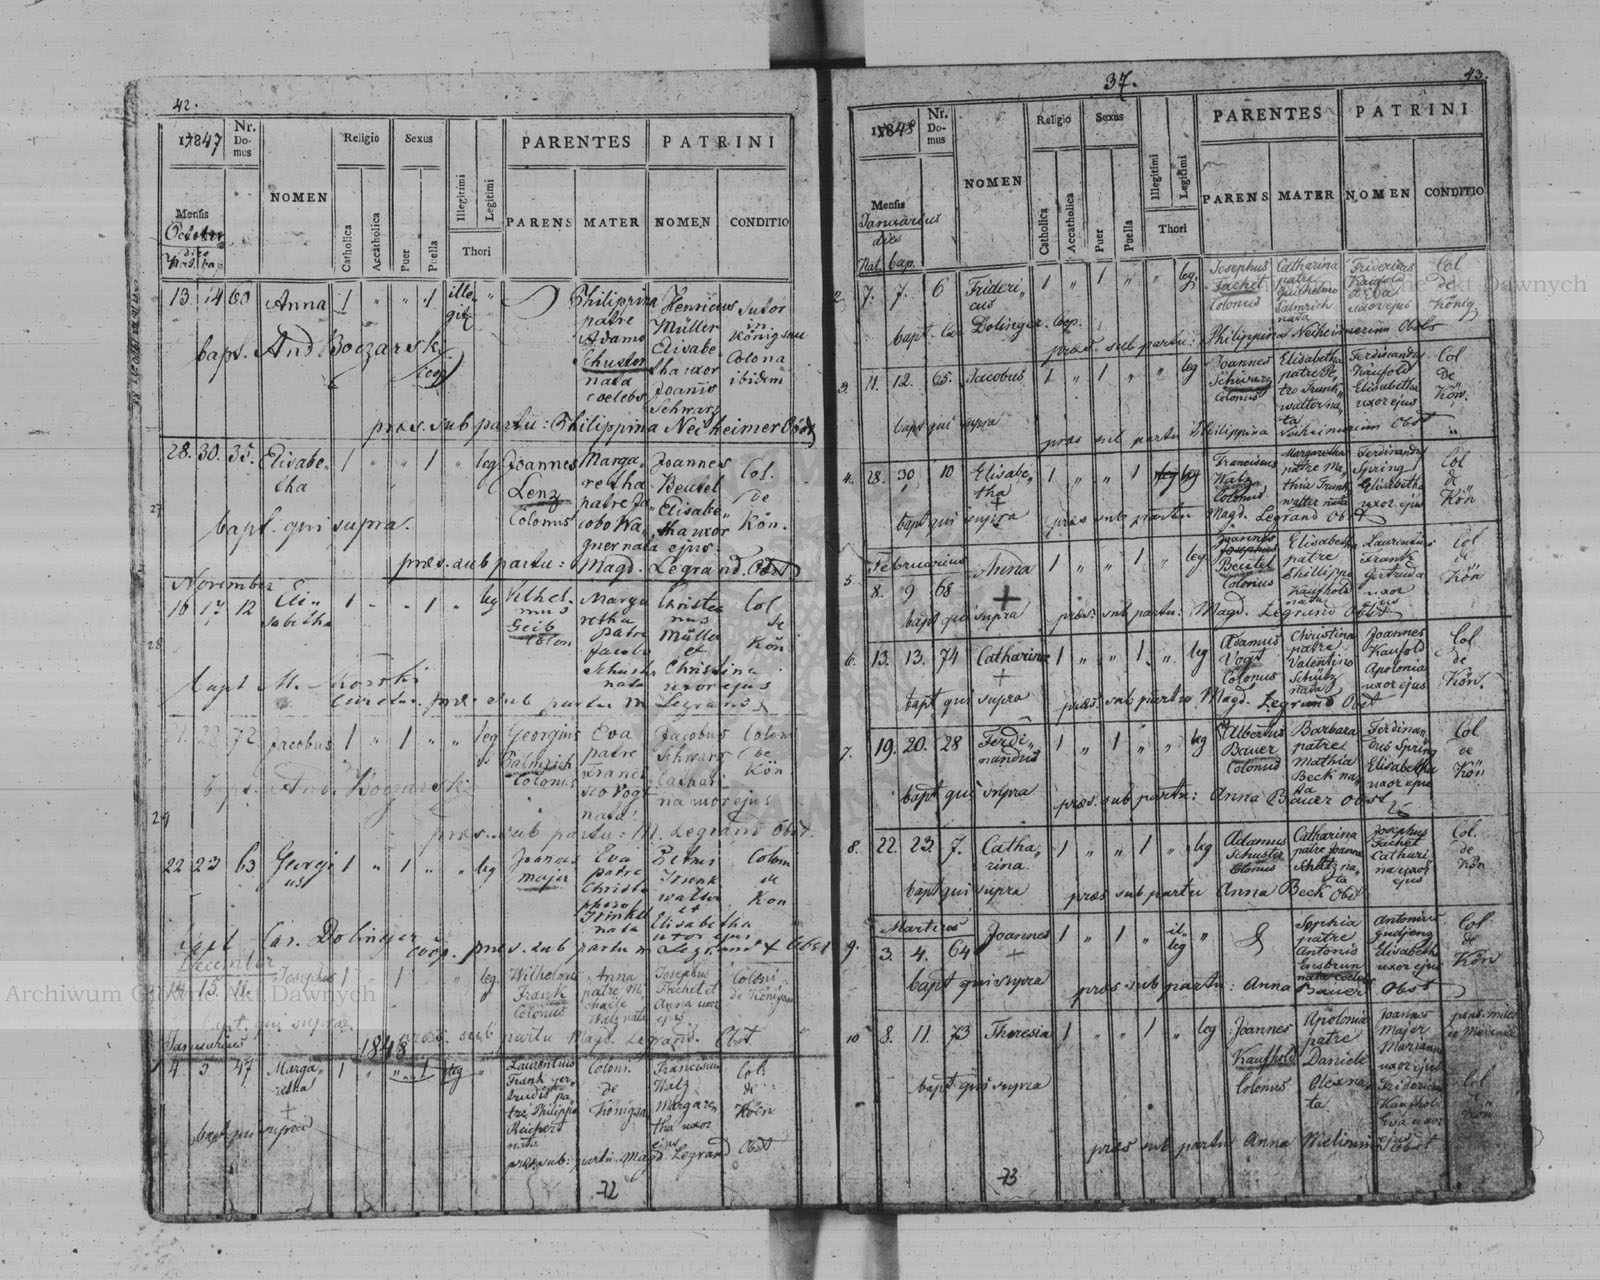 42.
1847
Nr. Domus
NOMEN
Religio
Sexus
Catholica
Accatholica
Puer
Puella
Illegitimi
Legitimi
Thori
PARENTES
PATRINI
PARENS
MATER
NOMEN
CONDITIO
Mensis
October
13. 14 60 Anna 1 " " 1 illegit " Philippina patre Adamo Schuster nata coelebs
Henricus Müller Sutor in Königsau
Elisabetha uxor Joanis Schwarz Colona ibidem
bapt. And Boczarski Coop
præs. sub partu: Philippina Neiheimer Obst
27
28. 30. 35. Elisabetha 1 " " 1 " leg Joannes Lenz Colonus
Margaretha patre Jacobo Wagner nata
Joannes Beutel Elisabetha uxor ejus
Col. de Kön.
bapt. qui supra.
præs. sub partu: Magd. Legrand. Obst
28
November
16 17 12 Elisabetha 1 - - 1 " leg Vilhelmus Geib Colon
Margaretha patre Jacobo Schuster nata
Christianus Müller et Christina uxor ejus
Col de Kön
bapt M.
præs. sub partu M Legrand
29
22 72 Jacobus 1 " 1 " " leg Georgius Colonus
Eva patre Francisco Vogt nata
Jacobus Schwarz Catharina uxor ejus
Coloni de Kön
bapt. And.
præs. sub partu: M. Legrand Obst.
22 23 63 Georgius 1 " 1 " " leg Joannes Majer
Eva patre Christophoro Trinkel nata
Petrus Trunkwalter et Elisabetha uxor ejus
Coloni de Kön
bapt Car. Dolinger coop. præs. sub partu M Legrand Obst
December
14 15 11. Josephus 1 " 1 " leg. Wilhelmus Frank Colonus
Anna patre Michaele Walz nata
Josephus Fachet et Anna uxor ejus
Coloni de Königsau
bapt. qui supra
præs. sub partu Magd. Legrand. Obst
Januarius
1848
4 5 47 Margaretha 1 " " 1 leg "
Laurentius Frank Gertrudis patre Philippo Reichert nata
Coloni de Königsau
Franciscus Walz Margaretha uxor ejus
Col. de Kön
bapt qui supra
præs. sub: partu. Magd Legrand Obst
72
37.
43.
1848
Nr. Domus
NOMEN
Religio
Sexus
Catholica
Accatholica
Puer
Puella
Illegitimi
Legitimi
Thori
PARENTES
PATRINI
PARENS
MATER
NOMEN
CONDITIO
Mensis
Januarius
die
Nat. bap.
2. 7. 7. 6 Fridericus 1 " 1 " " leg. Josephus Fachet Colonus
Catharina patre Guilhelmo Salmrich nata
Fridericus Kaufold et Eva uxor ejus
Col de König
bapt. Car Dolinger. Coop.
præs. sub partu: Philippina Neiheimerin Obst
3. 11. 12. 65. Jacobus 1 " 1 " " leg Joannes Schwarz Colonus
Elisabetha patre Petro Trunkwalter nata
Ferdinandus Kaufold Elisabetha uxor ejus
Col de Kön.
bapt qui supra
præs sub partu Philippina Neiheimerin Obst
4. 28. 30 10 Elisabetha 1 " " 1 leg Franciscus Walz Colonus
Margaretha patre Mathia Trunkwalter nata
Ferdinandus Spring Elisabetha uxor ejus
Col de Kön
bapt qui supra præs sub partu Magd. Legrand Obst
Februarius
5 8. 9 68 Anna 1 " " 1 " leg Joannes Josephus Beutel Colonus
Elisabetha patre Phillippo Kaufhold nata
Laurentius Frank Gertruda uxor ejus
Col de Kön
bapt qui supra præs. sub partu: Magd. Legrand Obst
6. 13. 13. 74 Catharina 1 " " 1 " leg Adamus Vogt Colonus
Christina patre Valentino Schütz nata
Joannes Kaufold Apolonia uxor ejus
Col. de Kön.
bapt qui supra præs. sub partu Magd. Legrand Obst
7. 19. 20. 28 Ferdinandus 1 " 1 " " leg Albertus Bauer Colonus
Barbara patre Mathia Beck nata
Ferdinandus Spring Elisabetha uxor ejus
Col de Kön
bapt qui supra præs. sub partu: Anna Bauer Obst
8. 22. 23. 7. Catharina. 1 " " 1 " leg Adamus Schuster Colonus
Catharina patre Joanne Schütz nata
Josephus Fachet Catharina uxor ejus
Col. de Kön
bapt qui supra præs sub partu Anna Beck Obst
Martius
9. 3. 4. 64 Joannes 1 " 1 " illeg "
Sophia patre Antonio nata coelebs
Antonius Elisabeth uxor ejus
Col de Kön
bapt qui supra præs sub partu: Anna Bauer Obst
10 8. 11. 73 Theresia 1 " " 1 " leg Joannes Kaufhold Colonus
Apolonia patre Daniele nata
Joannes Majer Mariann uxor ejus
Fridericus Kaufhold Eva uxor ejus
Col de Kön
bapt qui supra
præs sub partu Anna Obst
73
Archiwum Główne Akt Dawnych